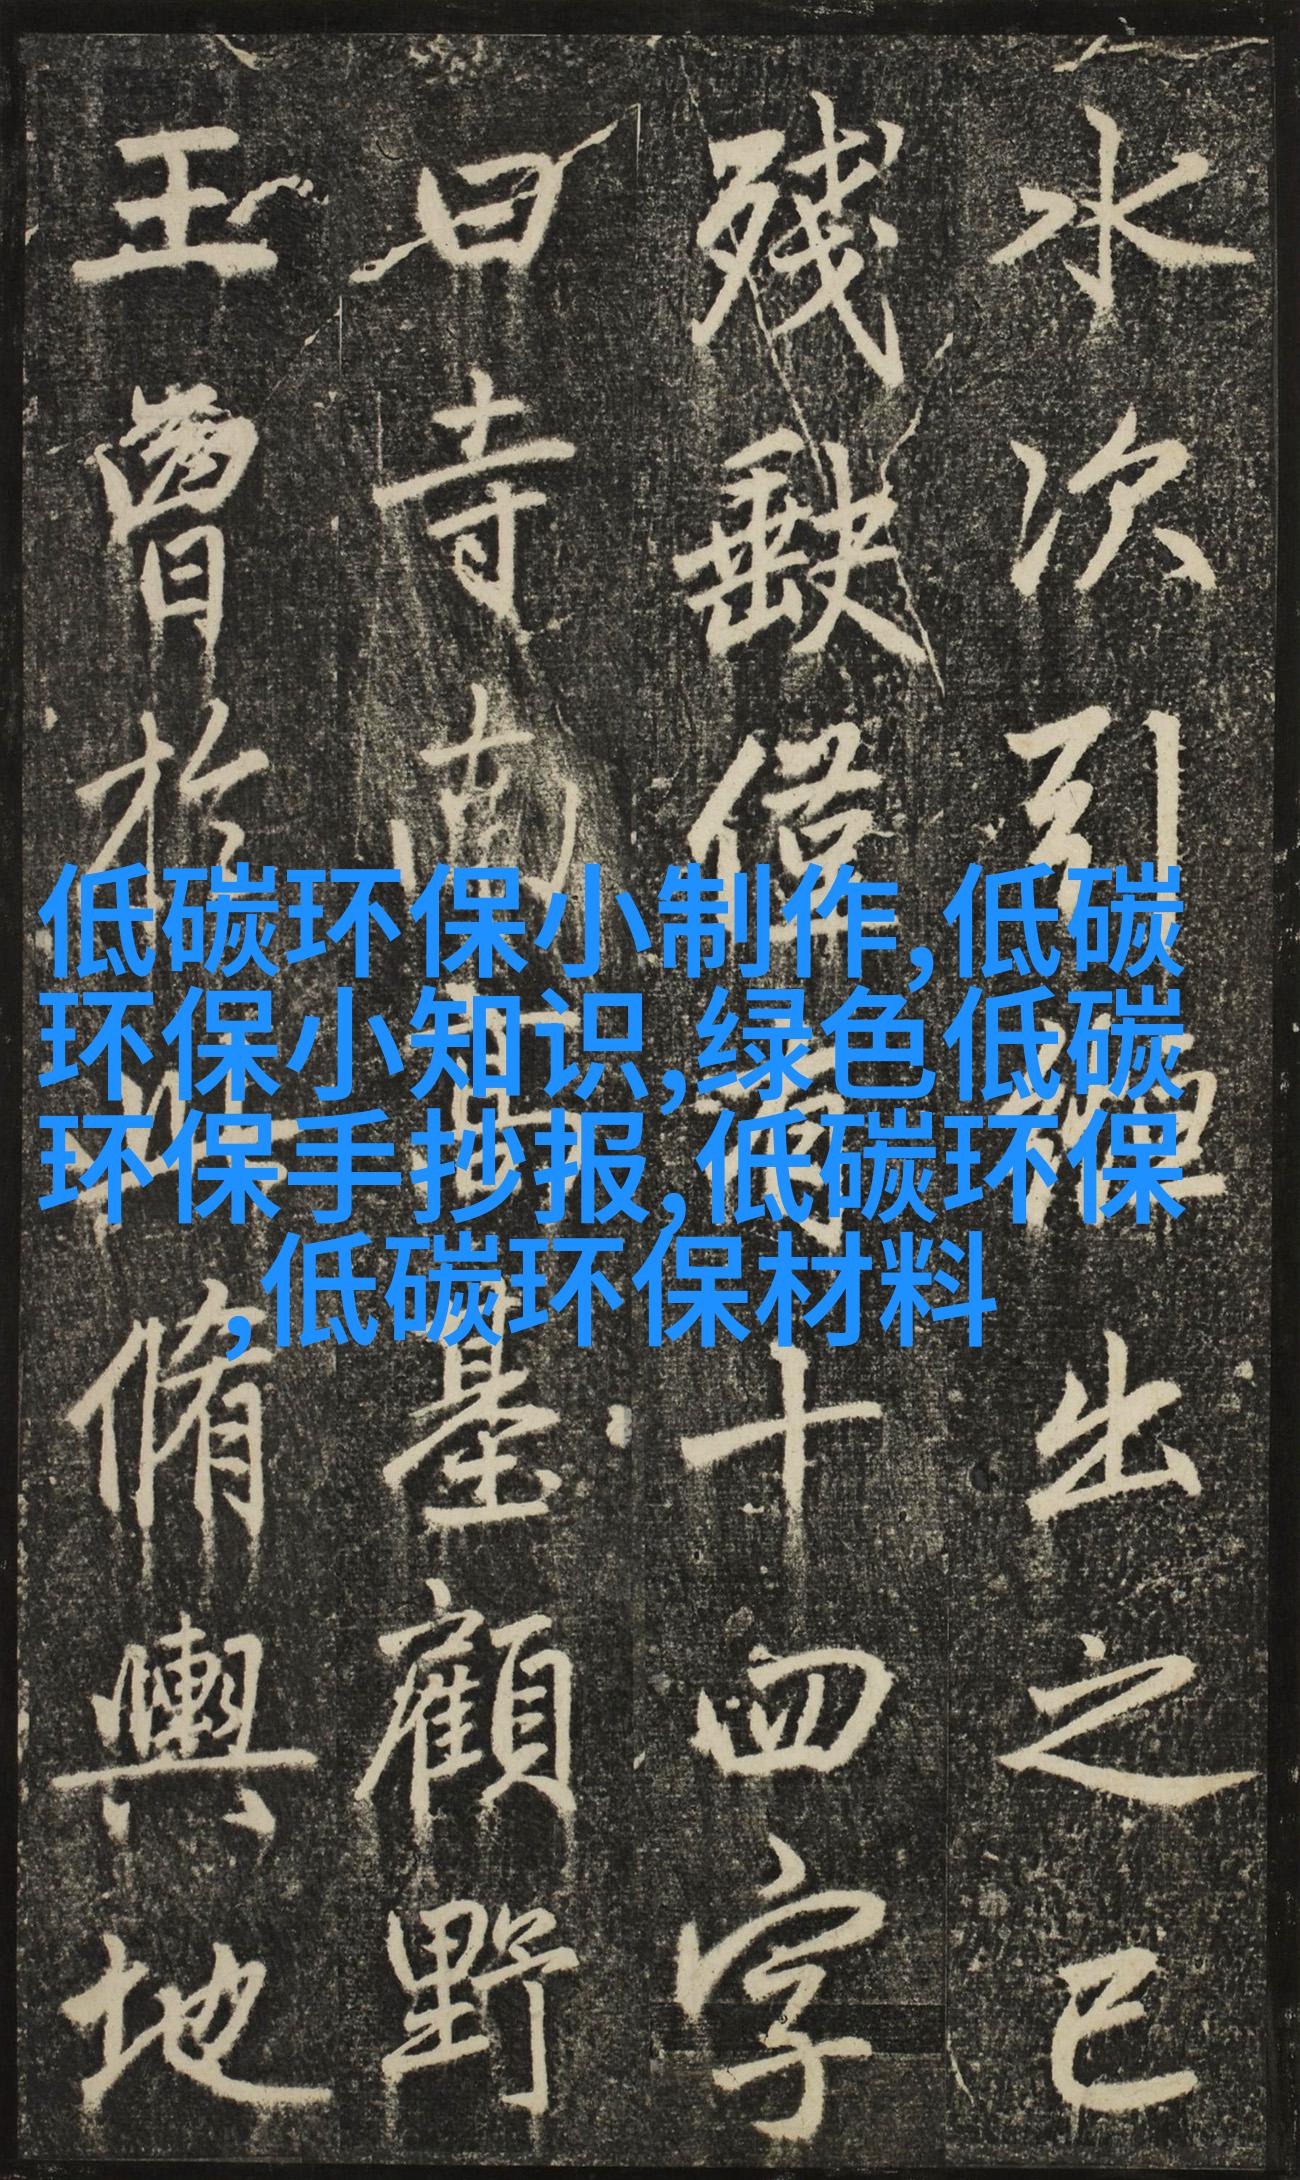 水次引出之已
残缺僅有十四字
曰寺南高基顧野
王曾於此脩輿地
低碳环保小制作,低碳
环保小知识,绿色低碳
环保手抄报,低碳环保
,低碳环保材料